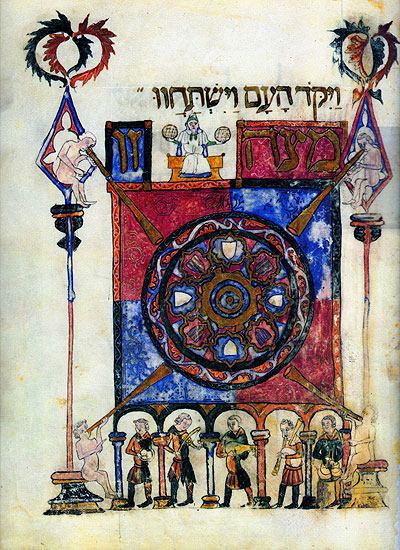 וַיִּקֹּד הָעָם וַיִּשְׁתַּחֲווּ
מצה זו